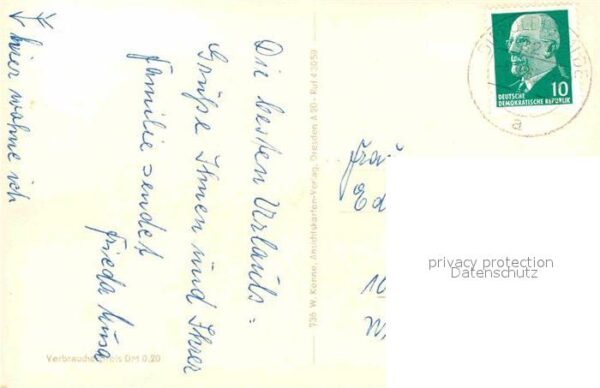 Die besten Urlaubs =
Grüße Ihnen und Ihrer
Familie sendet
Frieda
hier wohne ich
Verbraucherpreis DM 0,20
736 W. Kenne, Ansichtskarten-Verlag, Dresden A 20 - Ruf 43059
DEUTSCHE
DEMOKRATISCHE REPUBLIK
10
a
Frau
Ed
10
W
privacy protection
Datenschutz